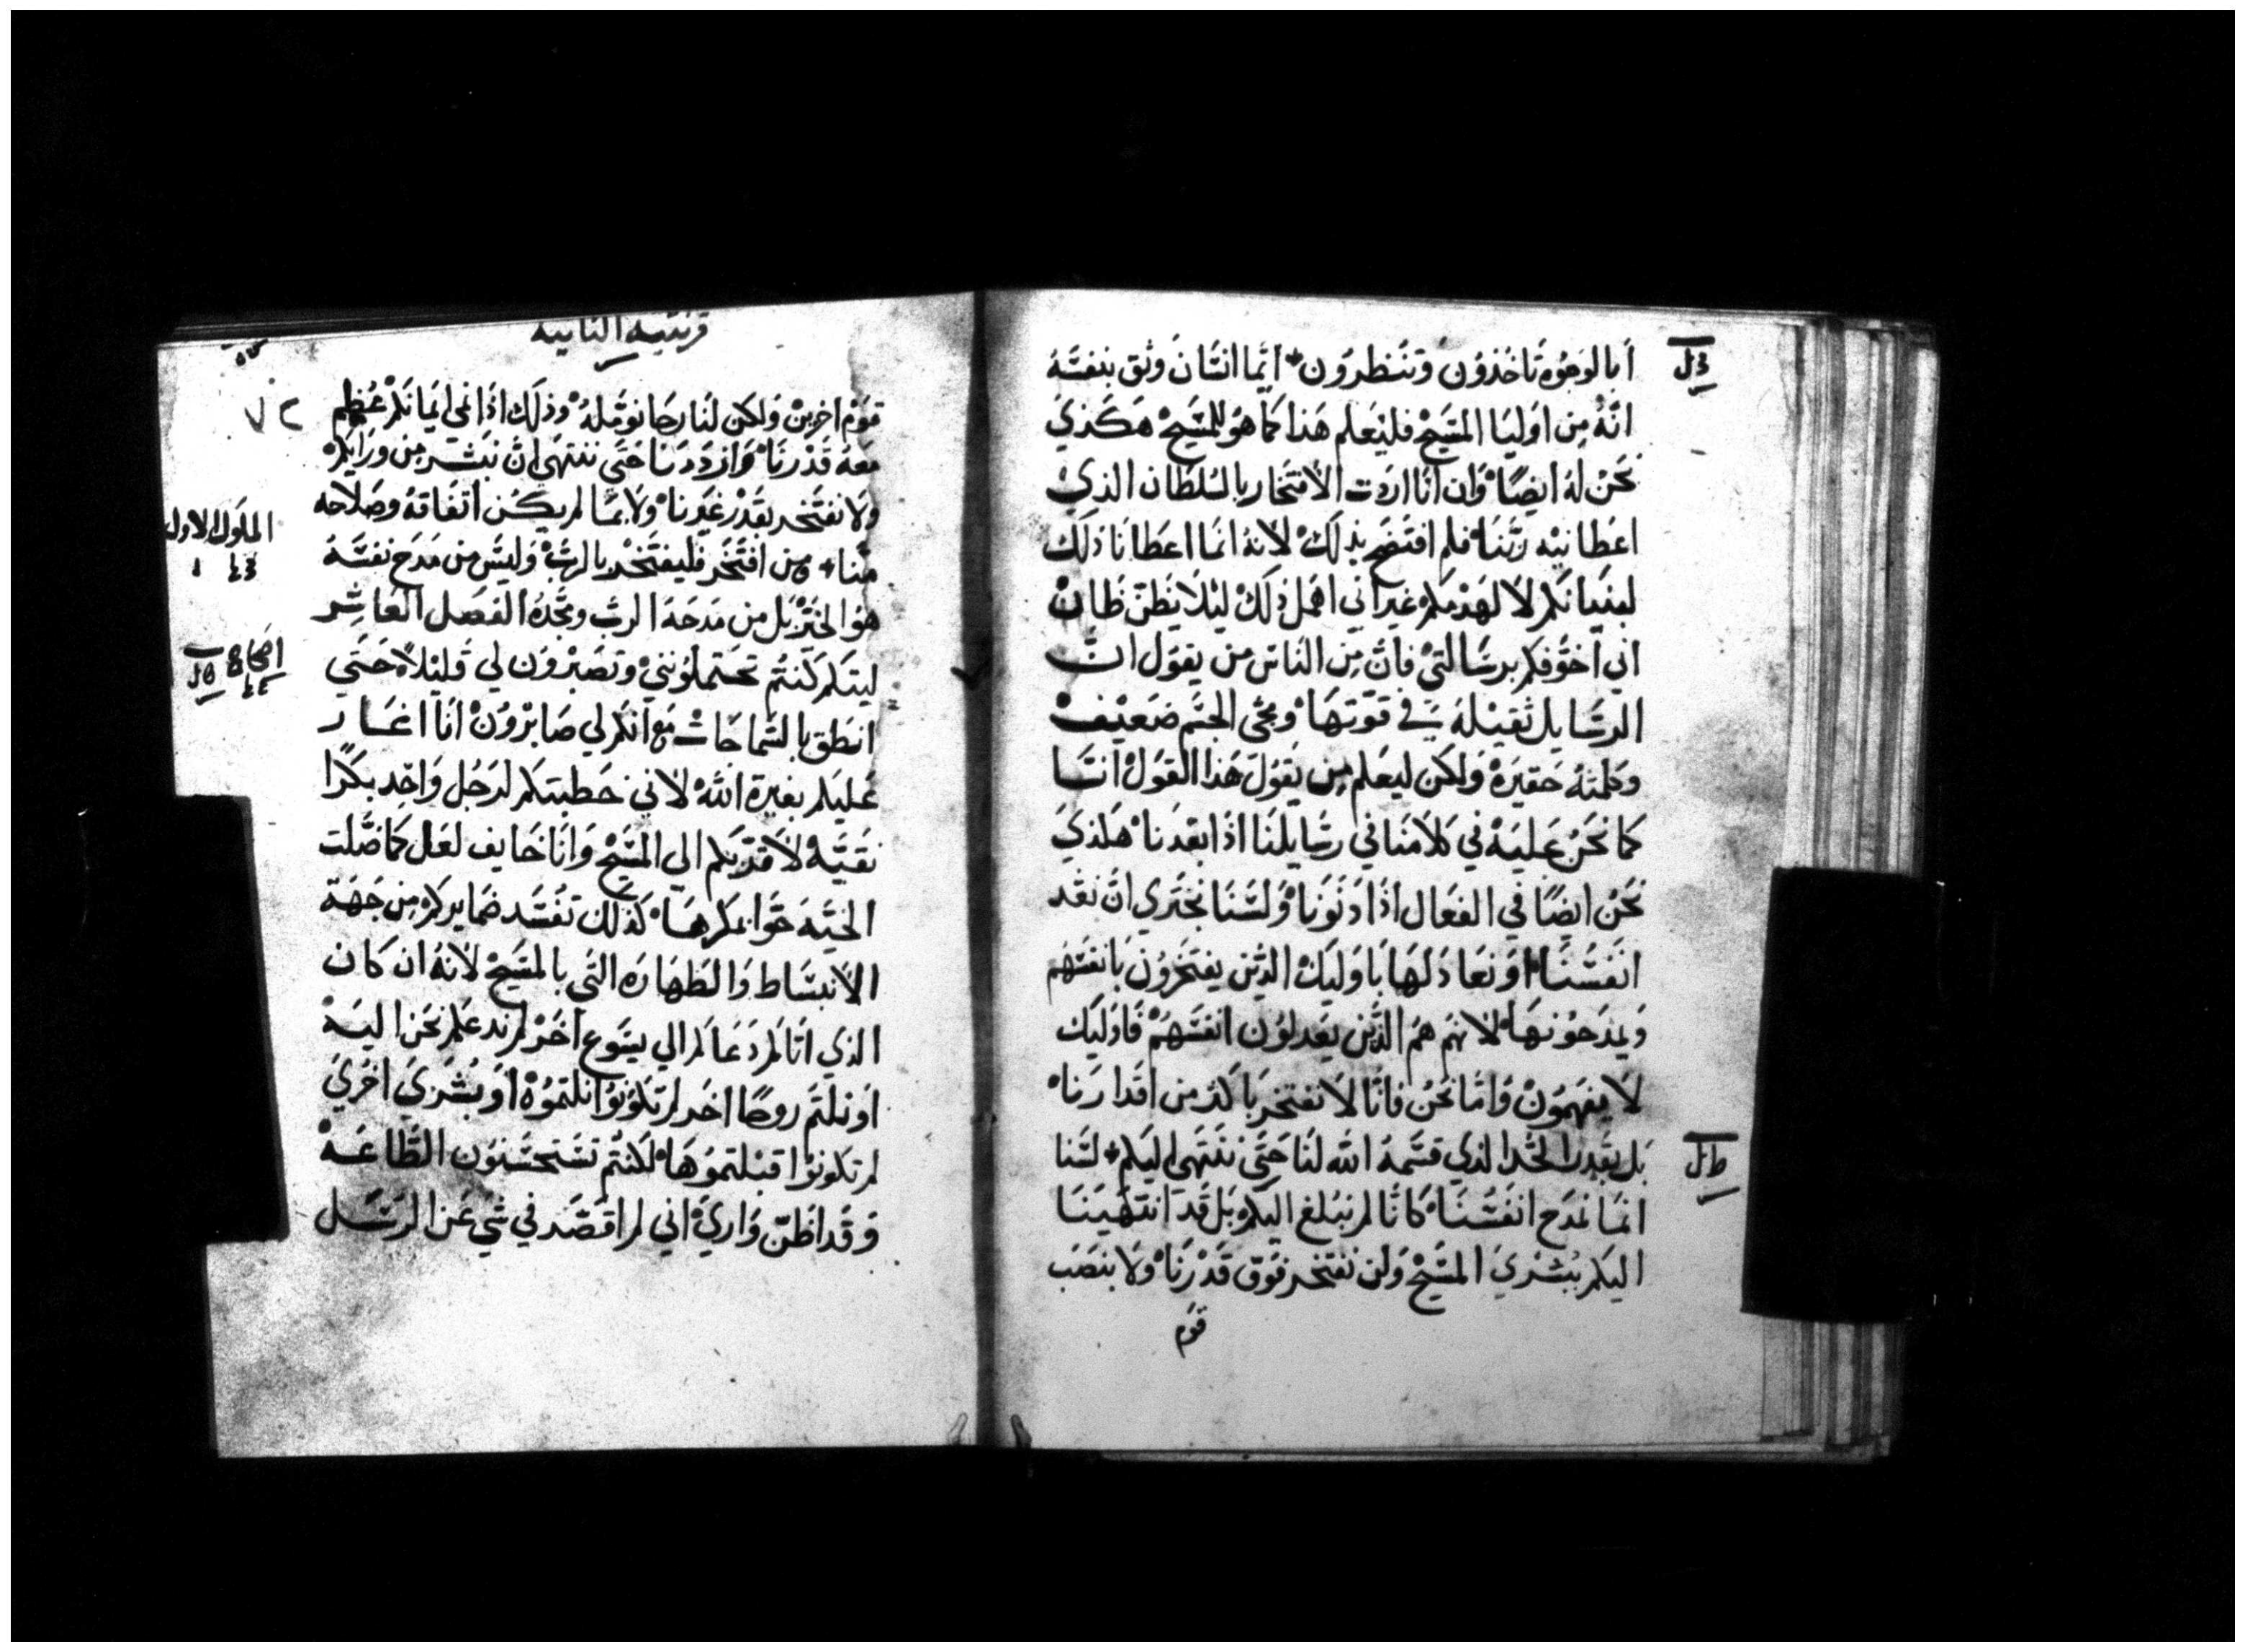 أبالوجوه تاخذون وتنظرون أيما انسان وثق بنفسه
انه من اوليا المسيح فليعلم هذا كما هو للمسيح هكذي
نحن له ايضا وان انا اردت الافتخار بالسلطان الذي
اعطانيه ربنا فلم افتضح بذلك لانه انما اعطانا ذلك
لبنيانكم لا لهدمكم غير اني اهمل ذلك ليلا يظن ظان
اني اخوفكم برسالتي فان من الناس من يقول ان
الرسايل ثقيله في قوتها ومجى الجسم ضعيف
وكلمته حقيره ولكن ليعلم من يقول هذا القول اننا
كما نحن عليه في كلامنا في رسايلنا اذا ابعدنا هكذي
نحن ايضا في الفعال اذا دنونا ولسنا نجتري ان نعد
انفسنا او نعادلها باوليك الذين يفتخرون بانفسهم
ويمدحونها لانهم هم الذين يعدلون انفسهم فاوليك
لا يفهمون واما نحن فانا لا نفتخر باكثر من اقدارنا
بل بقدر الحد الذي قسمه الله لنا حتى ننتهى اليكم لسنا
انما نمدح انفسنا كانا لم نبلغ اليكم بل قد انتهينا
اليكم ببشري المسيح ولن نفتخر فوق قدرنا ولا بنصب
قوم
قرنتيه الثانيه
قوم اخرين ولكن لنا رجا نومله وذلك اذا نمى ايمانكم عظم
معه قدرنا وازددنا حتى ننتهى ان نبشر من ورايكم
ولا نفتخر بقدر غيرنا ولا بما لم يكن اتفاقه وصلاحه
منا ومن افتخر فليفتخر بالرب وليس من مدح نفسه
هو الخير بل من مدحه الرب ومجده الفصل العاشر
ليتكم كنتم تحتملونني وتصبرون لي قليلا حتى
انطق بالسماجات مع انكم لي صابرون انا اغار
عليكم بغيرة الله لاني خطبتكم لرجل واحد بكرا
نقيه لاقربكم الى المسيح وانا خايف لعل كما ضللت
الحيه حوا بمكرها كذلك تفسد ضمايركم من جهة
الانبساط والطهاره التي بالمسيح لانه ان كان
الذي اتاكم دعاكم الي يسوع اخر لم ندعكم نحن اليه
او نلتم روحا اخر لم تكونوا نلتموه او بشري اخري
لم تكونوا قبلتموها لكنتم تستحسنون الطاعه
وقد اظن واري اني لم اقصد في شي عن الرسل
الملوك الاول
اصحاح